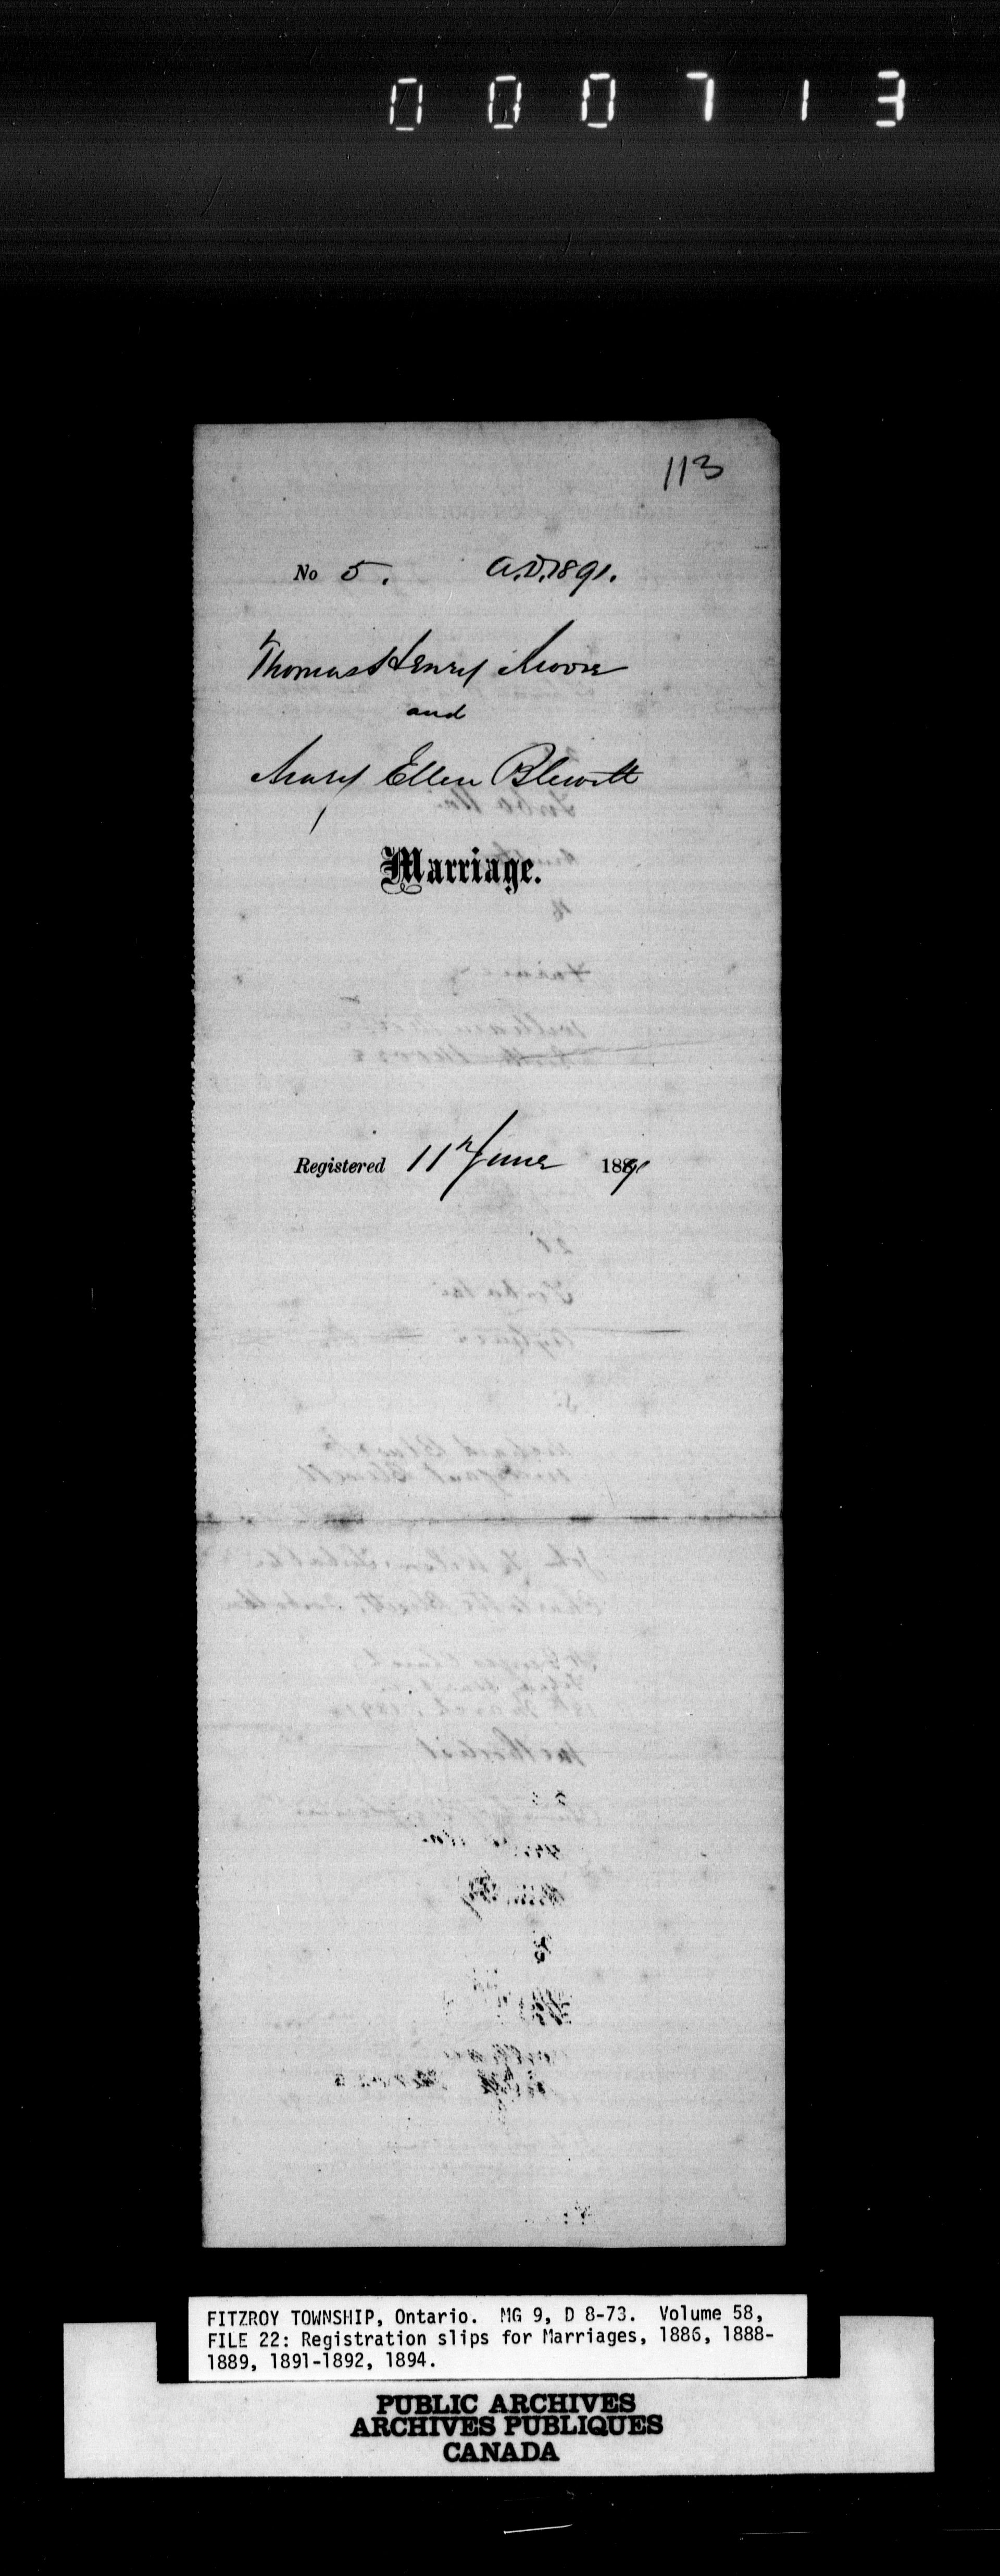 000713
113
No 5. A.D. 1891.
Thomas Henry Moore
and
Mary Ellen Blewitt
Marriage.
Registered 11th June 1891
FITZROY TOWNSHIP, Ontario. MG 9, D 8-73. Volume 58,
FILE 22: Registration slips for Marriages, 1886, 1888-
1889, 1891-1892, 1894.
PUBLIC ARCHIVES
ARCHIVES PUBLIQUES
CANADA